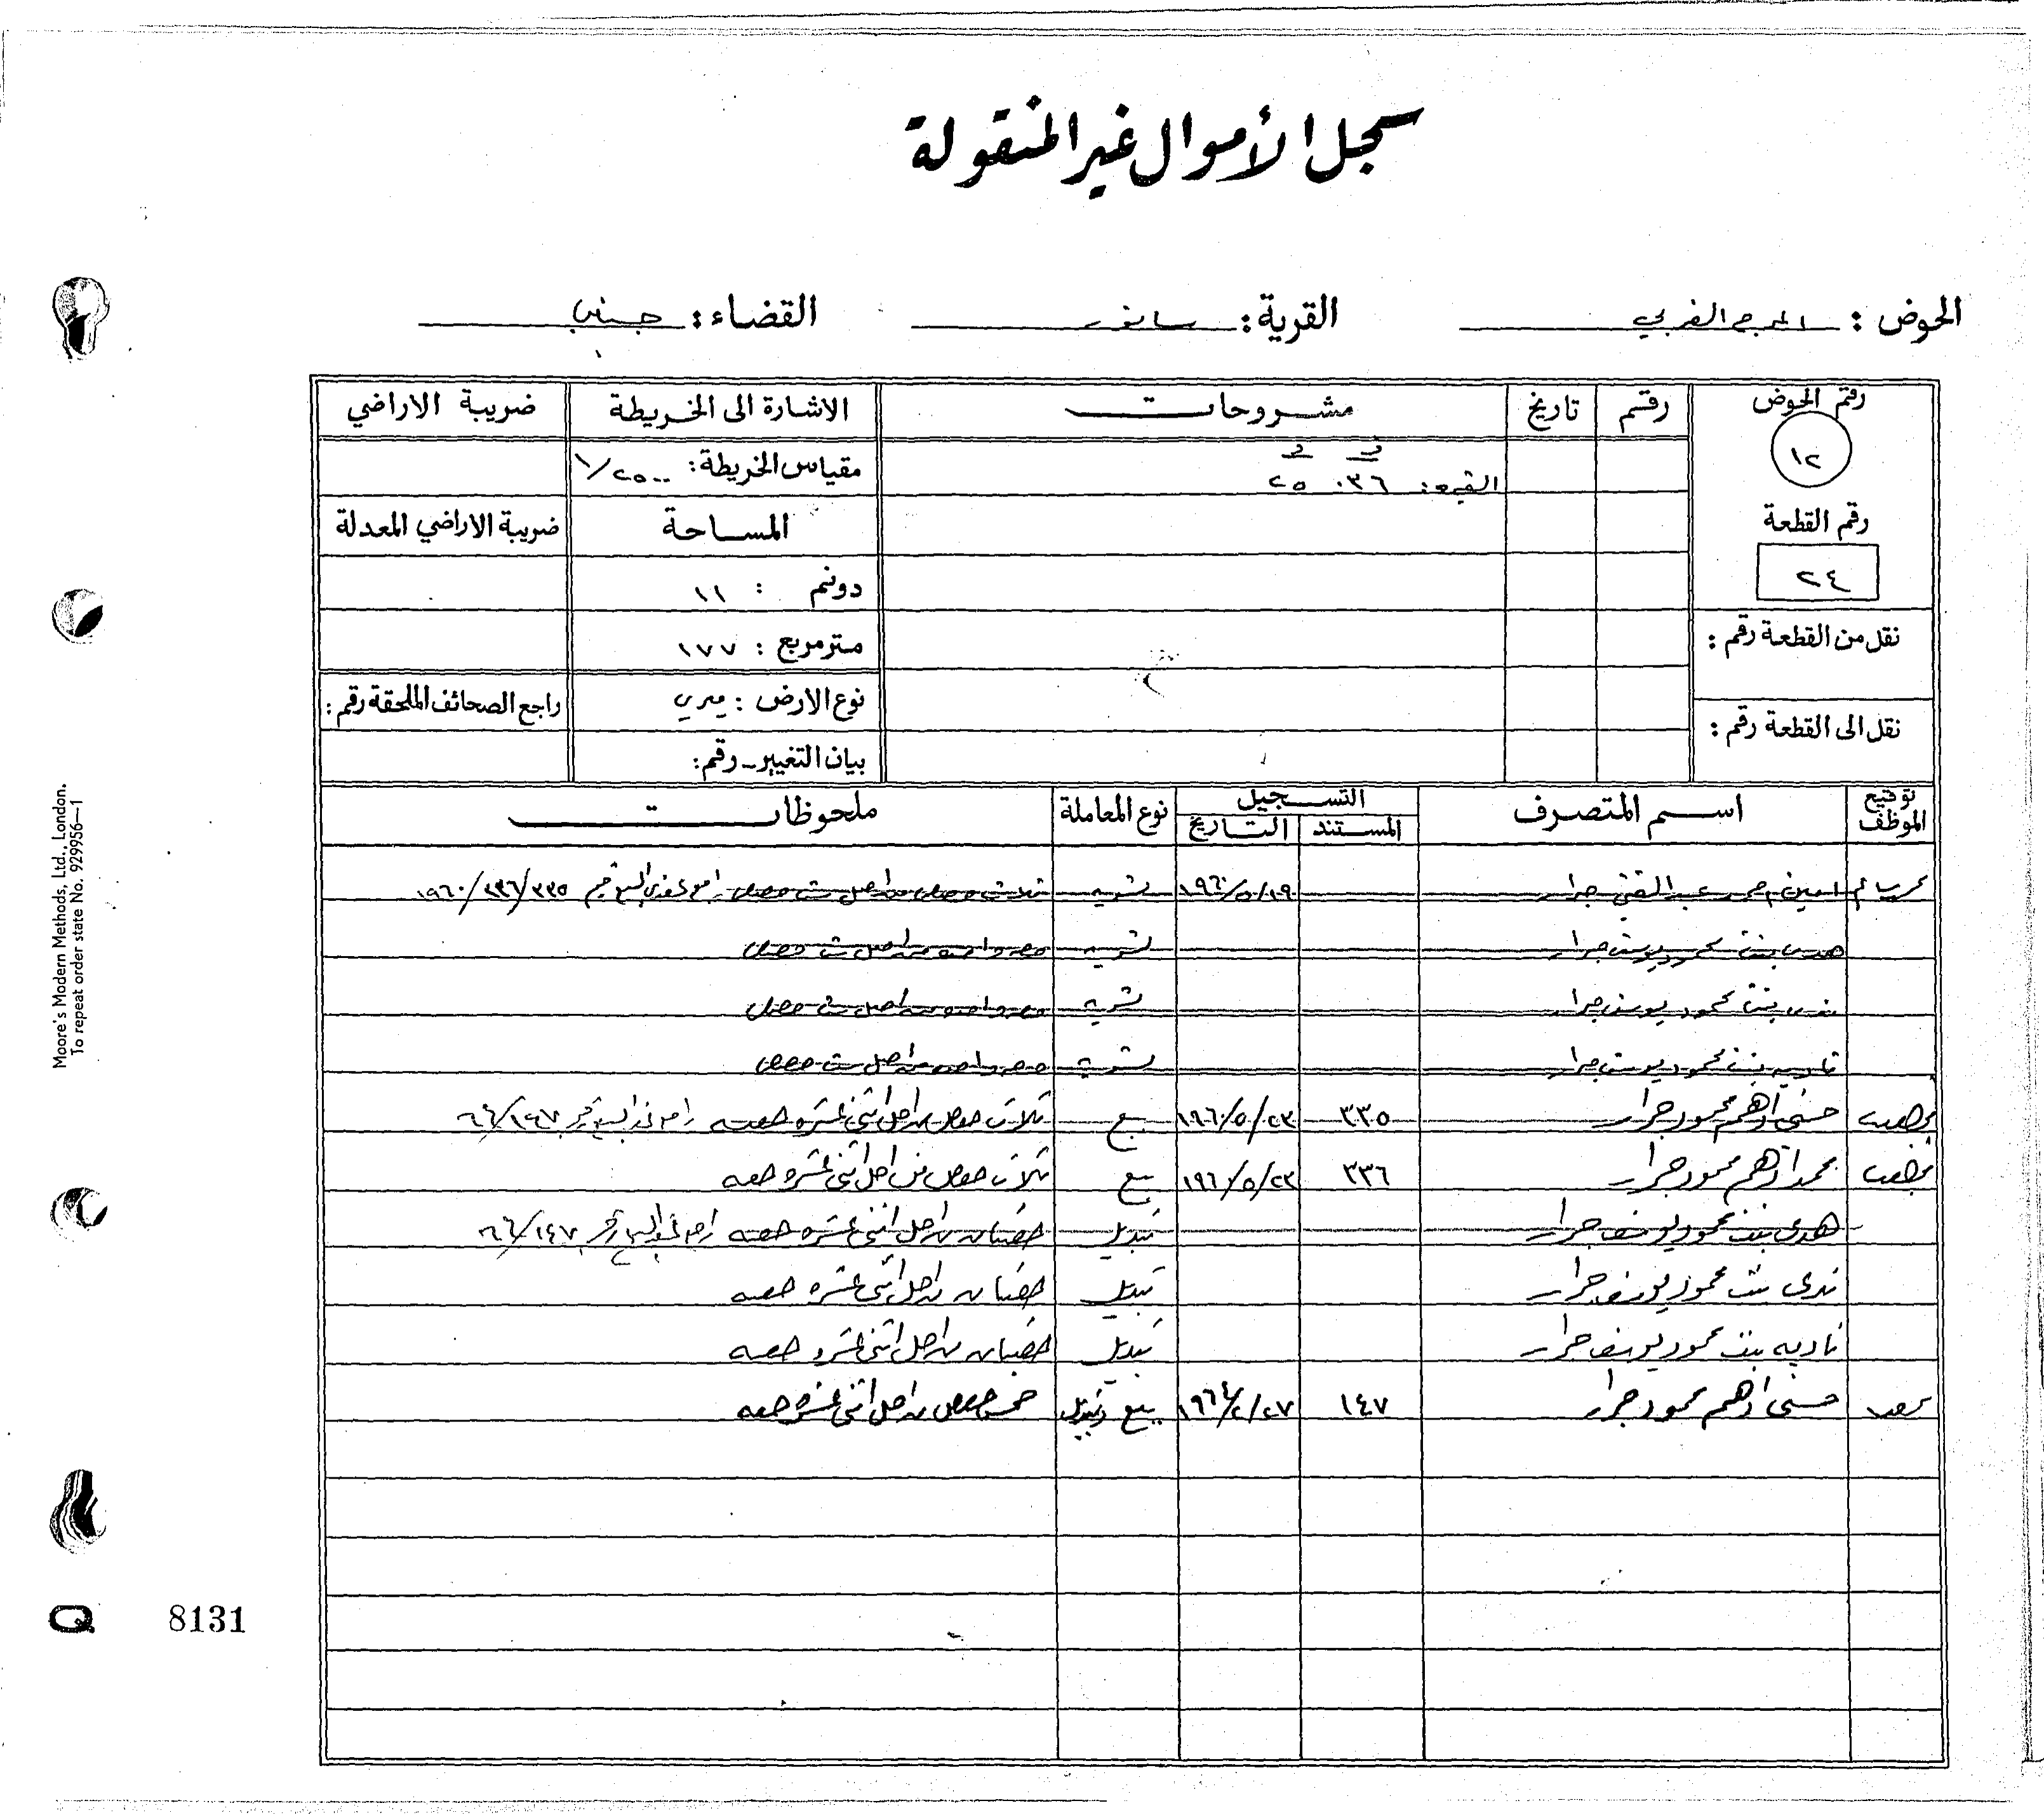 سجل الأموال غير المنقولة
الحوض : المرج الغربي القرية : سانور القضاء : جنين
رقم الحوض رقم تاريخ مشروحات الاشارة الى الخريطة ضريبة الاراضي
١٢ مقياس الخريطة : ١/٢٥٠٠
٠٣٦ ٢٥
رقم القطعة المساحة ضريبة الاراضي المعدلة
٢٤ دونم : ١١
نقل من القطعة رقم : متر مربع : ١٧٧
نوع الارض : ميري راجع الصحائف الملحقة رقم :
نقل الى القطعة رقم : بيان التغيير - رقم :
توقيع الموظف اسم المتصرف التسجيل نوع المعاملة ملحوظات
المستند التاريخ
امين احمد عبد الغني جرار ١٩٦٠/٥/١٩ تسويه ثلاث حصص من اصل ست حصص ١٩٦٠/٣٣٦/٣٣٥
هدى بنت محمود يوسف جرار تسويه حصه واحده من اصل ست حصص
ندى بنت محمود يوسف جرار تسويه حصه واحده من اصل ست حصص
ناديه بنت محمود يوسف جرار تسويه حصه واحده من اصل ست حصص
حسني ادهم محمود جرار ٣٣٥ ١٩٦٠/٥/٢٣ بيع ثلاث حصص من اصل اثني عشره حصه
محمد ادهم محمود جرار ٣٣٦ ١٩٦٠/٥/٢٣ بيع ثلاث حصص من اصل اثني عشره حصه
هدى بنت محمود يوسف جرار تبديل حصتان من اصل اثني عشره حصه
ندى بنت محمود يوسف جرار تبديل حصتان من اصل اثني عشره حصه
ناديه بنت محمود يوسف جرار تبديل حصتان من اصل اثني عشره حصه
حسني ادهم محمود جرار ١٤٧ بيع وتبديل خمس حصص من اصل اثني عشره حصه
Moore's Modern Methods, Ltd., London.
To repeat order state No. 929956—1
Q 8131